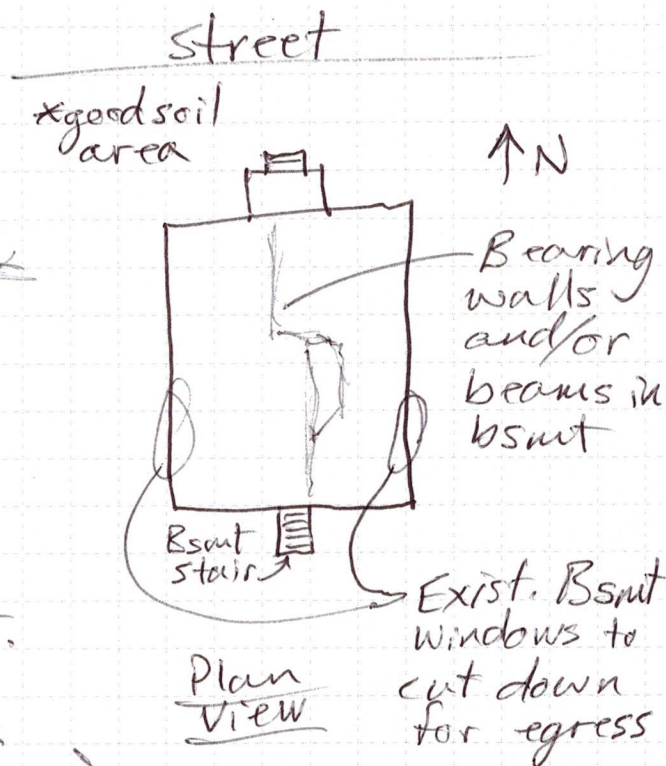 Street
*good soil
area
↑ N
Bearing
walls
and/or
beams in
bsmt
Bsmt
stair
Exist. Bsmt
windows to
cut down
for egress
Plan
View